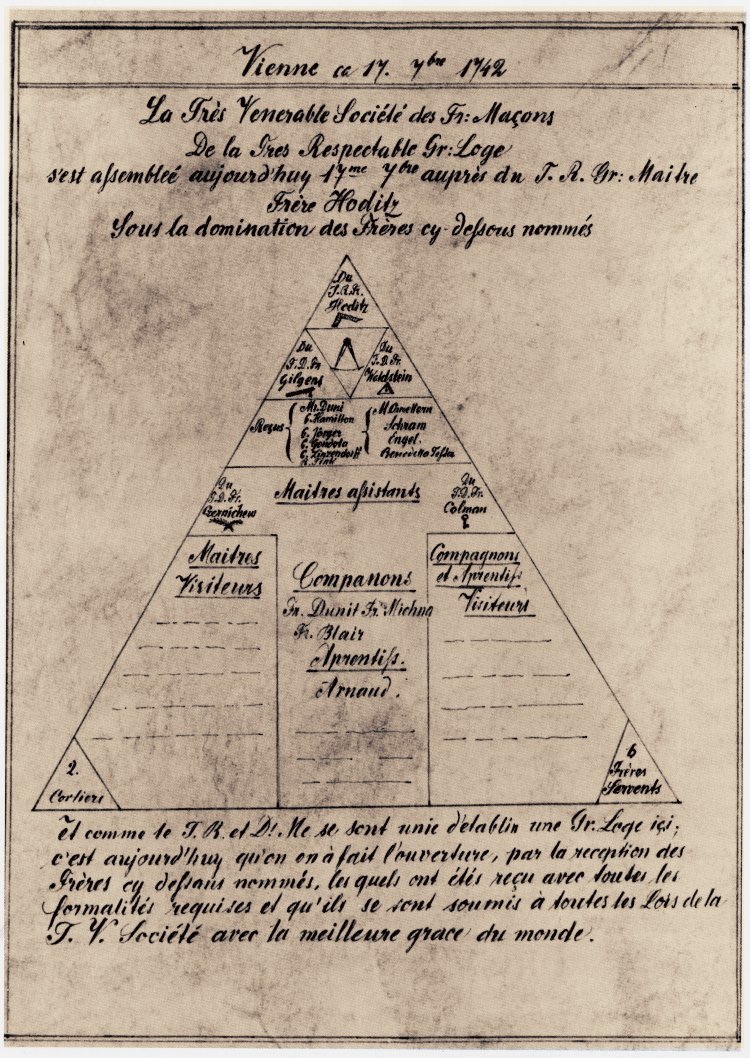 Vienne ce 17. 7bre 1742
La Très Venerable Société des Fr: Maçons
De la Tres Respectable Gr: Loge
s'est assembleé aujourd'huy 17me 7bre auprès du T. R. Gr: Maitre
Frère Hoditz
Sous la domination des Frères cy-dessous nommés
Du
T.R.F.
Hoditz
Du
T.D.Fr
Gilgens
Du
T.D.Fr.
Waldstein
Reçus
Mr. Duni
C. Hamilton
C. Joerger
C. Gondola
C. Zinzendorff
M.
Schram
Engel.
Benedetto Testa
Du
T.D.Fr.
Czernichew
Maitres assistants
Du
T.D.Fr.
Colman
Maitres
Visiteurs
Companons
Fr. Dunit Fr. Michna
Fr. Blair
Aprentiss.
Arnaud.
Compagnons
et Aprentiss
Visiteurs
2.
Portiers
6
Frères
Servents
et comme le T. R. et D. Me se sont unie d'etablir une Gr. Loge içi;
c'est aujourd'huy qu'on en à fait l'ouverture, par la reception des
Frères cy dessus nommés, les quels ont étés reçu avec toutes les
formalités requises et qu'ils se sont soumis à toutes les Lois de la
T. V. Société avec la meilleure grace du monde.